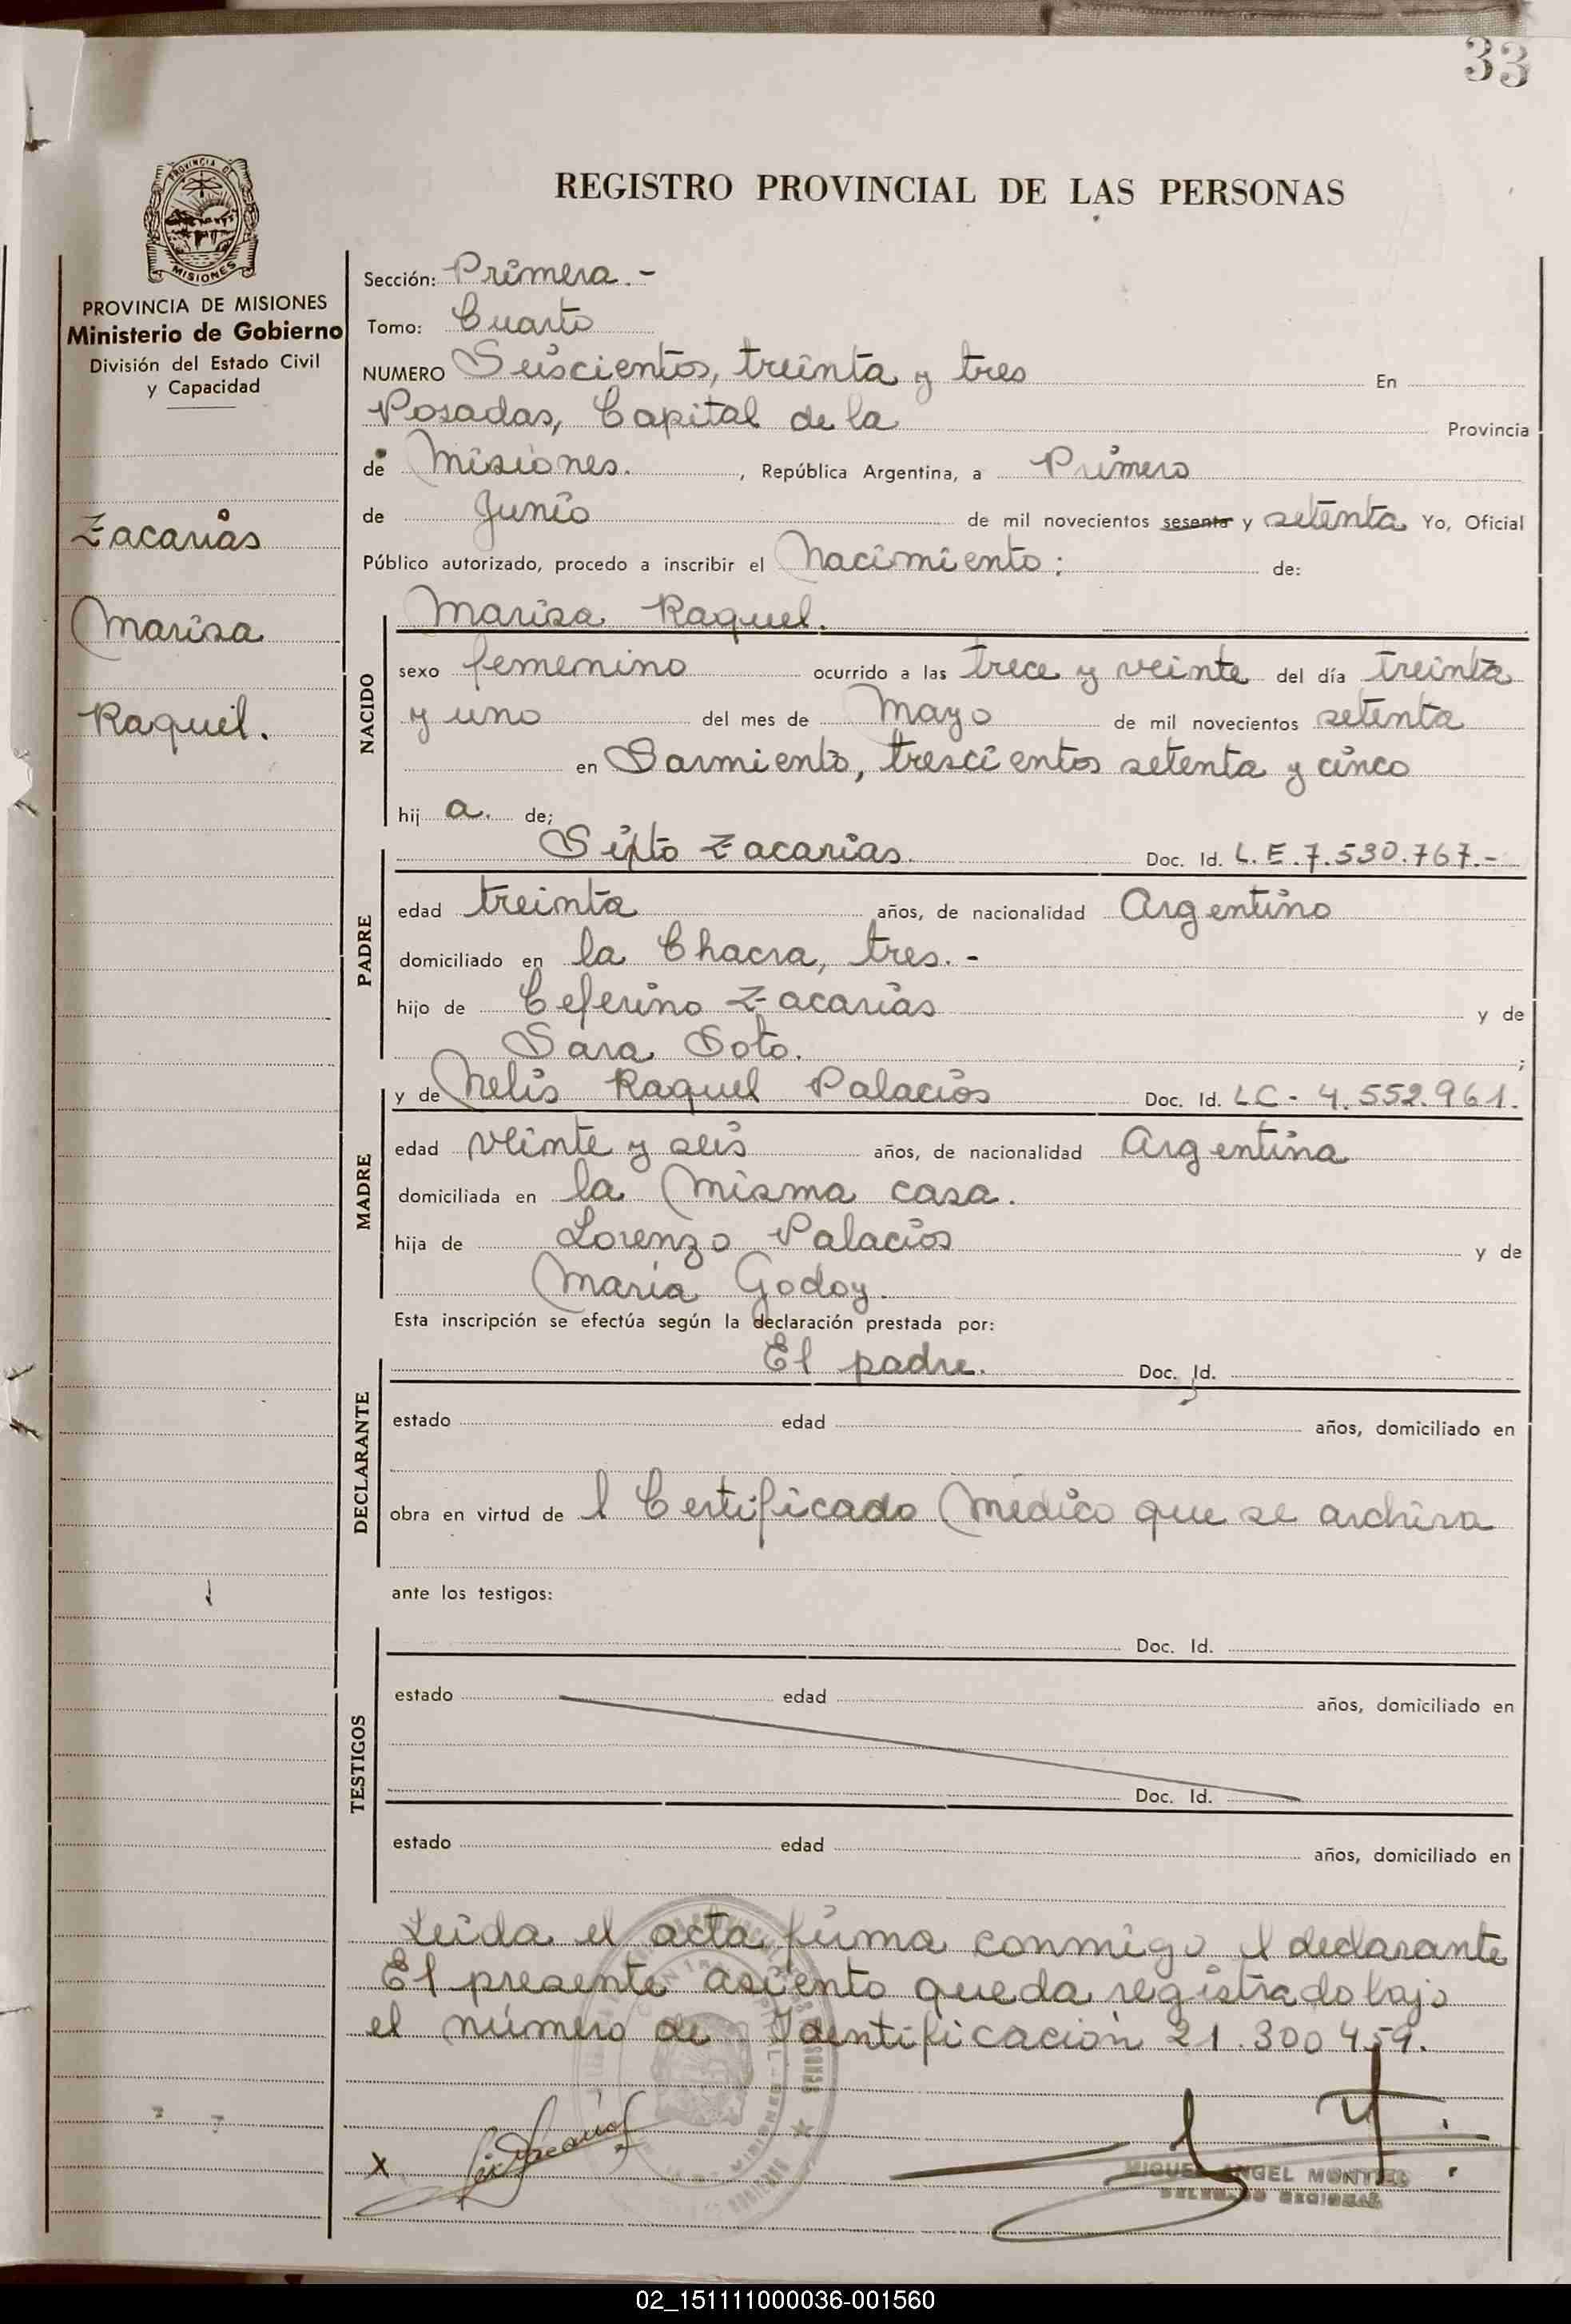 33
REGISTRO PROVINCIAL DE LAS PERSONAS
PROVINCIA DE
MISIONES
PROVINCIA DE MISIONES
Ministerio de Gobierno
División del Estado Civil
y Capacidad
Zacarias
Marisa
Raquel.
Sección: Primera.-
Tomo: Cuarto
NUMERO Seiscientos, treinta y tres En
Posadas, Capital de la Provincia
de Misiones. , República Argentina, a Primero
de Junio de mil novecientos sesenta y setenta Yo, Oficial
Público autorizado, procedo a inscribir el Nacimiento; de:
Marisa Raquel.
NACIDO
sexo femenino ocurrido a las trece y veinte del día treinta
y uno del mes de Mayo de mil novecientos setenta
en Sarmiento, trescientos setenta y cinco
hij a. de;
Sixto Zacarias. Doc. Id. L.E. 7.530.767.-
PADRE
edad treinta años, de nacionalidad Argentino
domiciliado en la Chacra, tres.-
hijo de Ceferino Zacarias y de
Sara Soto. ;
y de Nelis Raquel Palacios Doc. Id. LC- 4.552.961.
MADRE
edad veinte y seis años, de nacionalidad Argentina
domiciliada en la misma casa.
hija de Lorenzo Palacios y de
María Godoy.
Esta inscripción se efectúa según la declaración prestada por:
El padre. Doc. Id.
DECLARANTE
estado edad años, domiciliado en
obra en virtud de l Certificado Médico que se archiva
ante los testigos:
Doc. Id.
TESTIGOS
estado edad años, domiciliado en
Doc. Id.
estado edad años, domiciliado en
Leída el acta firma conmigo el declarante
El presente asiento queda registrado bajo
el número de Identificación 21.300459.
X
MIGUEL ANGEL MONTIEL
DELEGADO REGIONAL
02_151111000036-001560